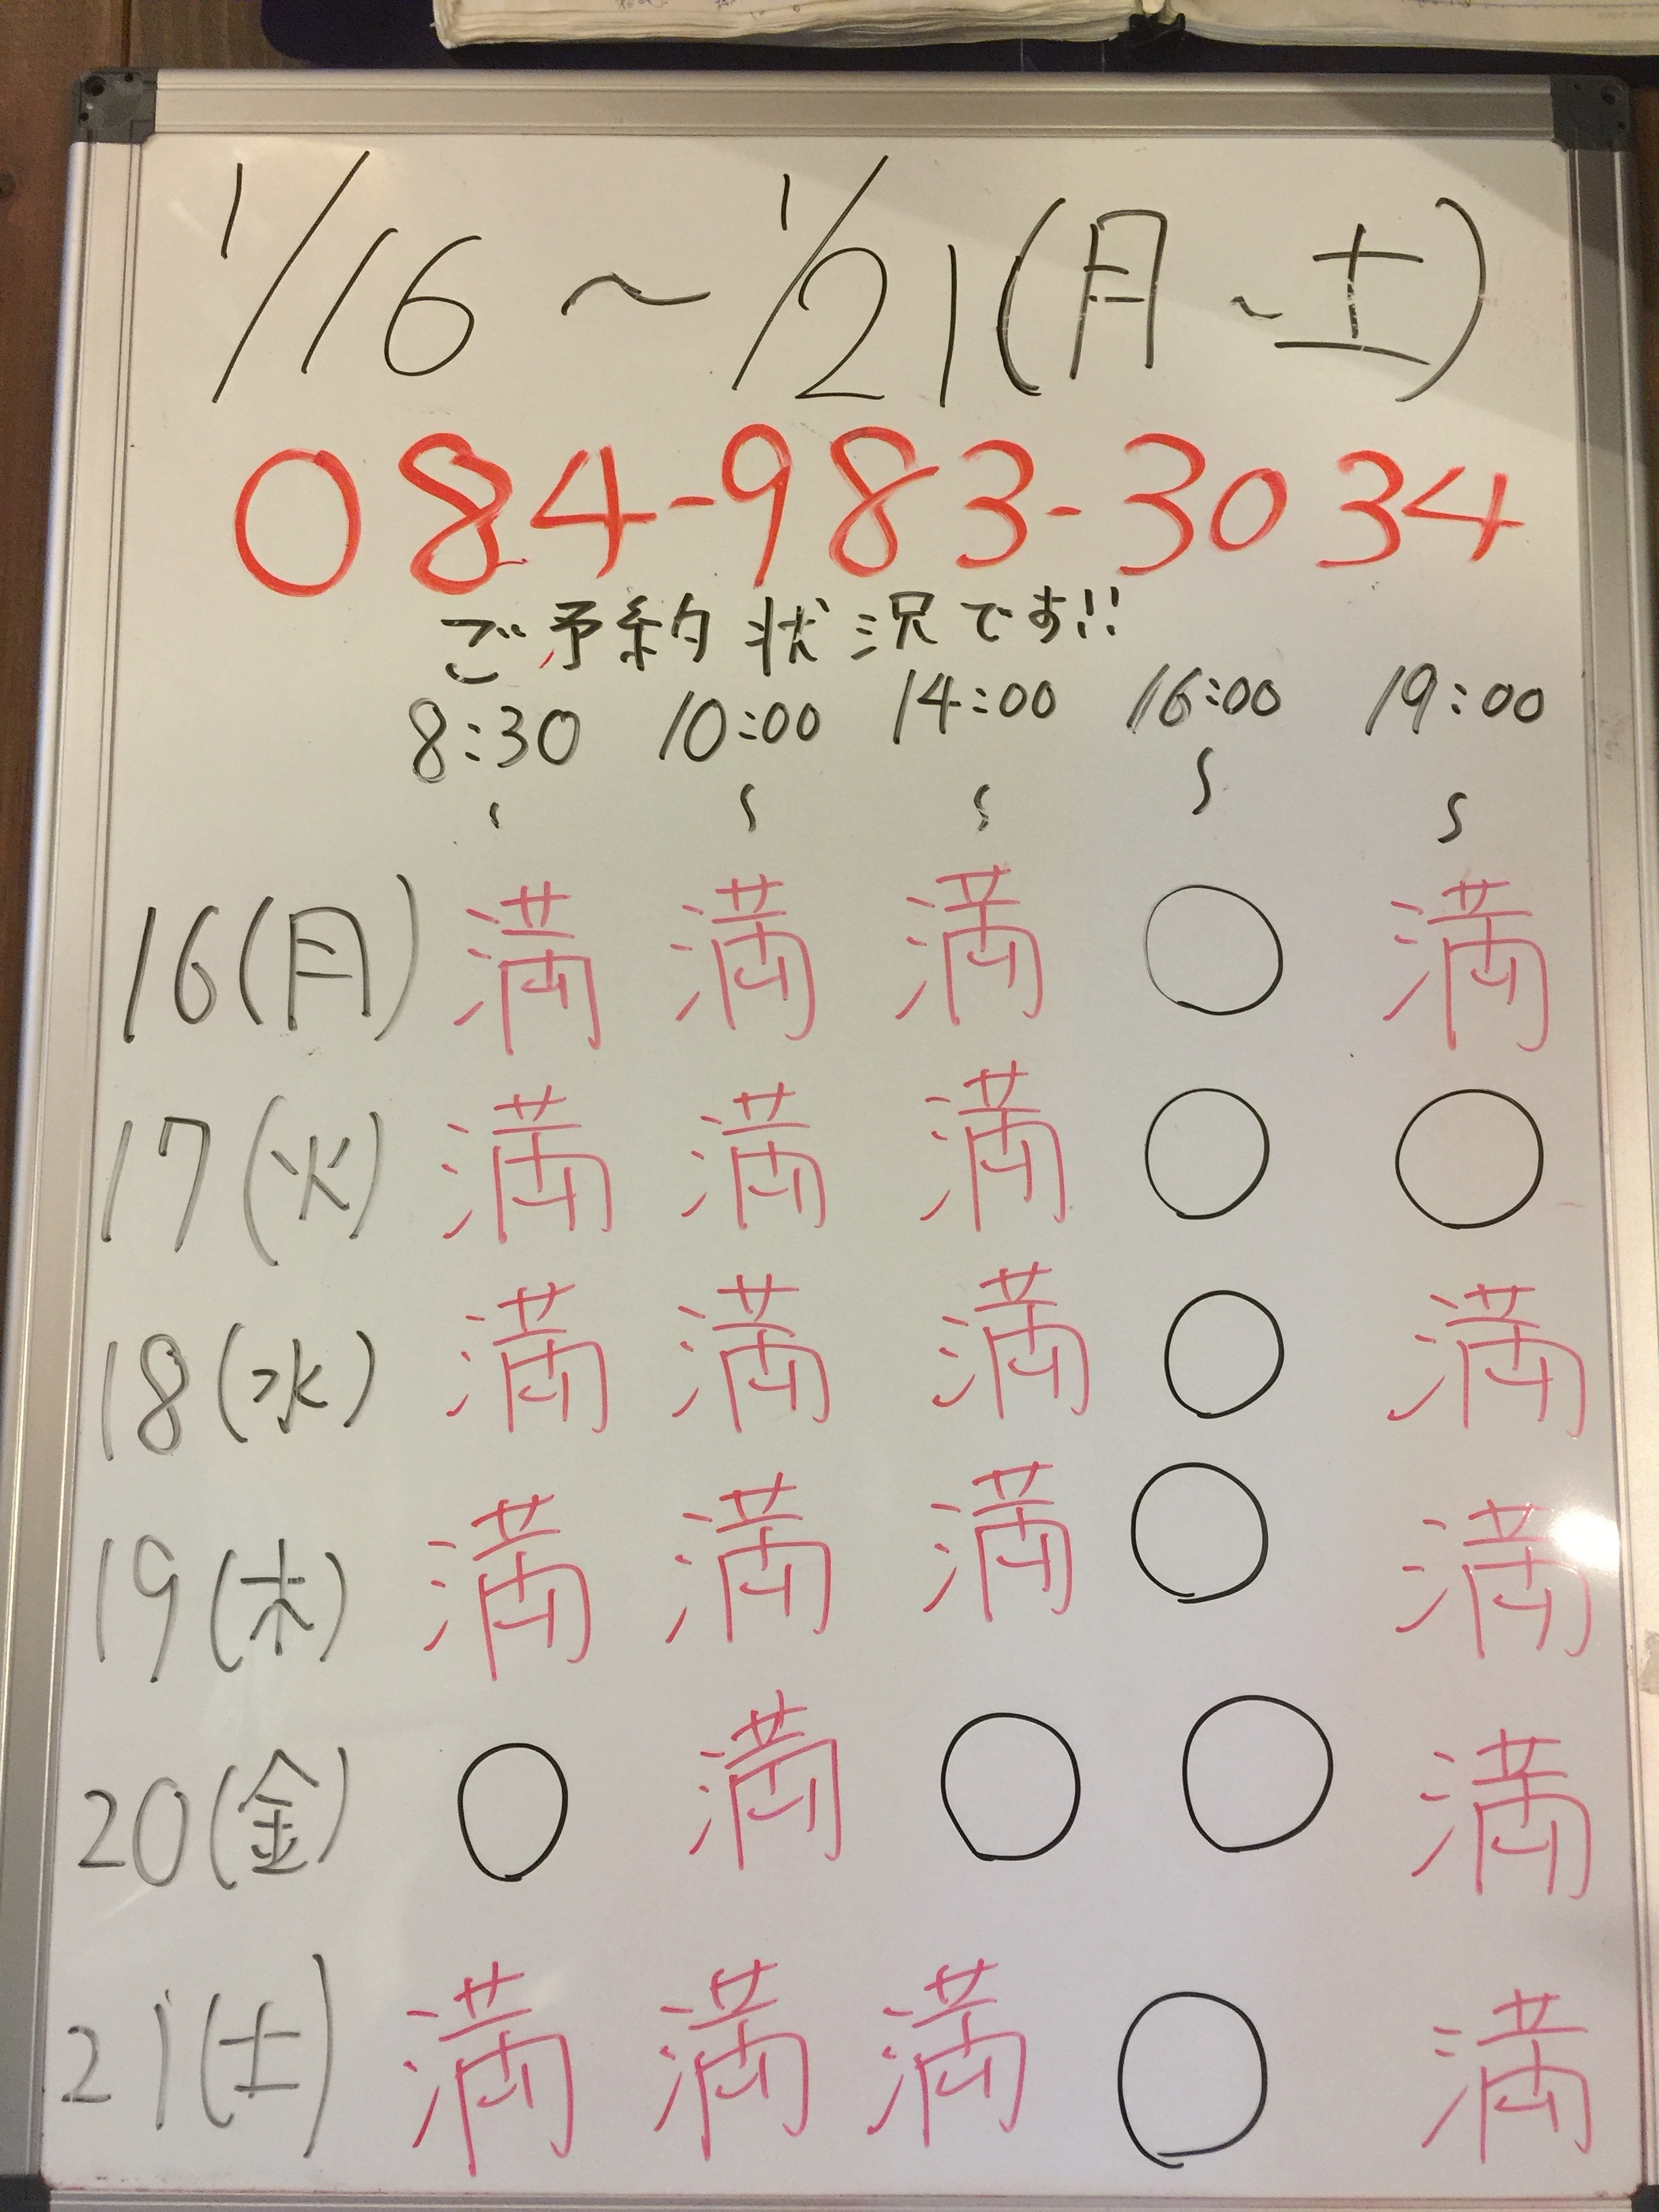 1/16～1/21(月～土)
084-983-3034
ご予約状況です!!
8:30 10:00 14:00 16:00 19:00
〜 〜 〜 〜 〜
16(月) 満 満 満 ○ 満
17(火) 満 満 満 ○ ○
18(水) 満 満 満 ○ 満
19(木) 満 満 満 ○ 満
20(金) ○ 満 ○ ○ 満
21(土) 満 満 満 ○ 満